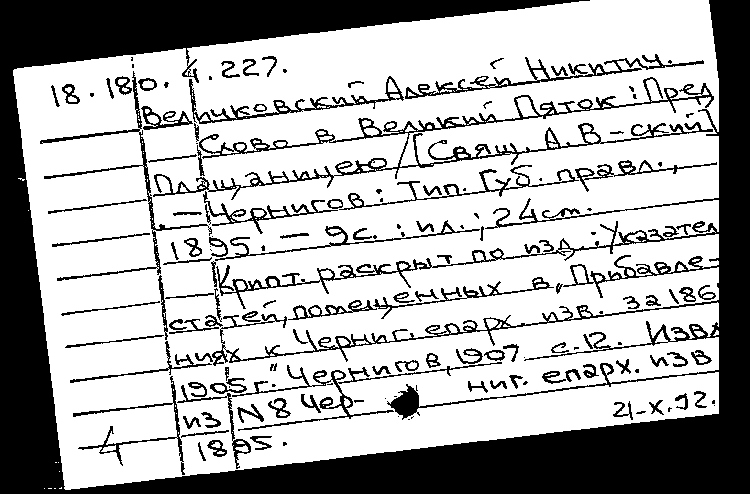 18.180.4.227.
Величковский, Алексей Никитич.
Слово в Великий Пяток : Пред
Плащаницею / [Свящ. А. В-ский]
. — Чернигов : Тип. Губ. правл.,
1895. — 9 с. : ил. ; 24 см.
Крипт. раскрыт по изд. : Указател
статей, помещенных в „Прибавле-
ниях к Черниг. епарх. изв. за 186
1905 г." Чернигов, 1907 с. 12. Извл
из N 8 Чер- ниг. епарх. изв
1895.
21-X.92.
4